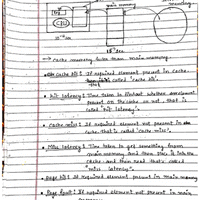 CPU
memory
10⁻⁹sec
→ Cache memory faster than main memory.
• Cache hit: If required element present in cache
called "cache hit".
• hit latency: Time taken to find out whether our element
present on the cache or not, that is
called "hit latency".
• cache miss: If required element not present in the
cache. that is called "cache miss".
• Miss latency: Time taken to get something from
main memory and then place it into the
cache and then read that's called
miss latency.
• page hit: If required element present in main memory
• Page fault: If required element not present in main
memory